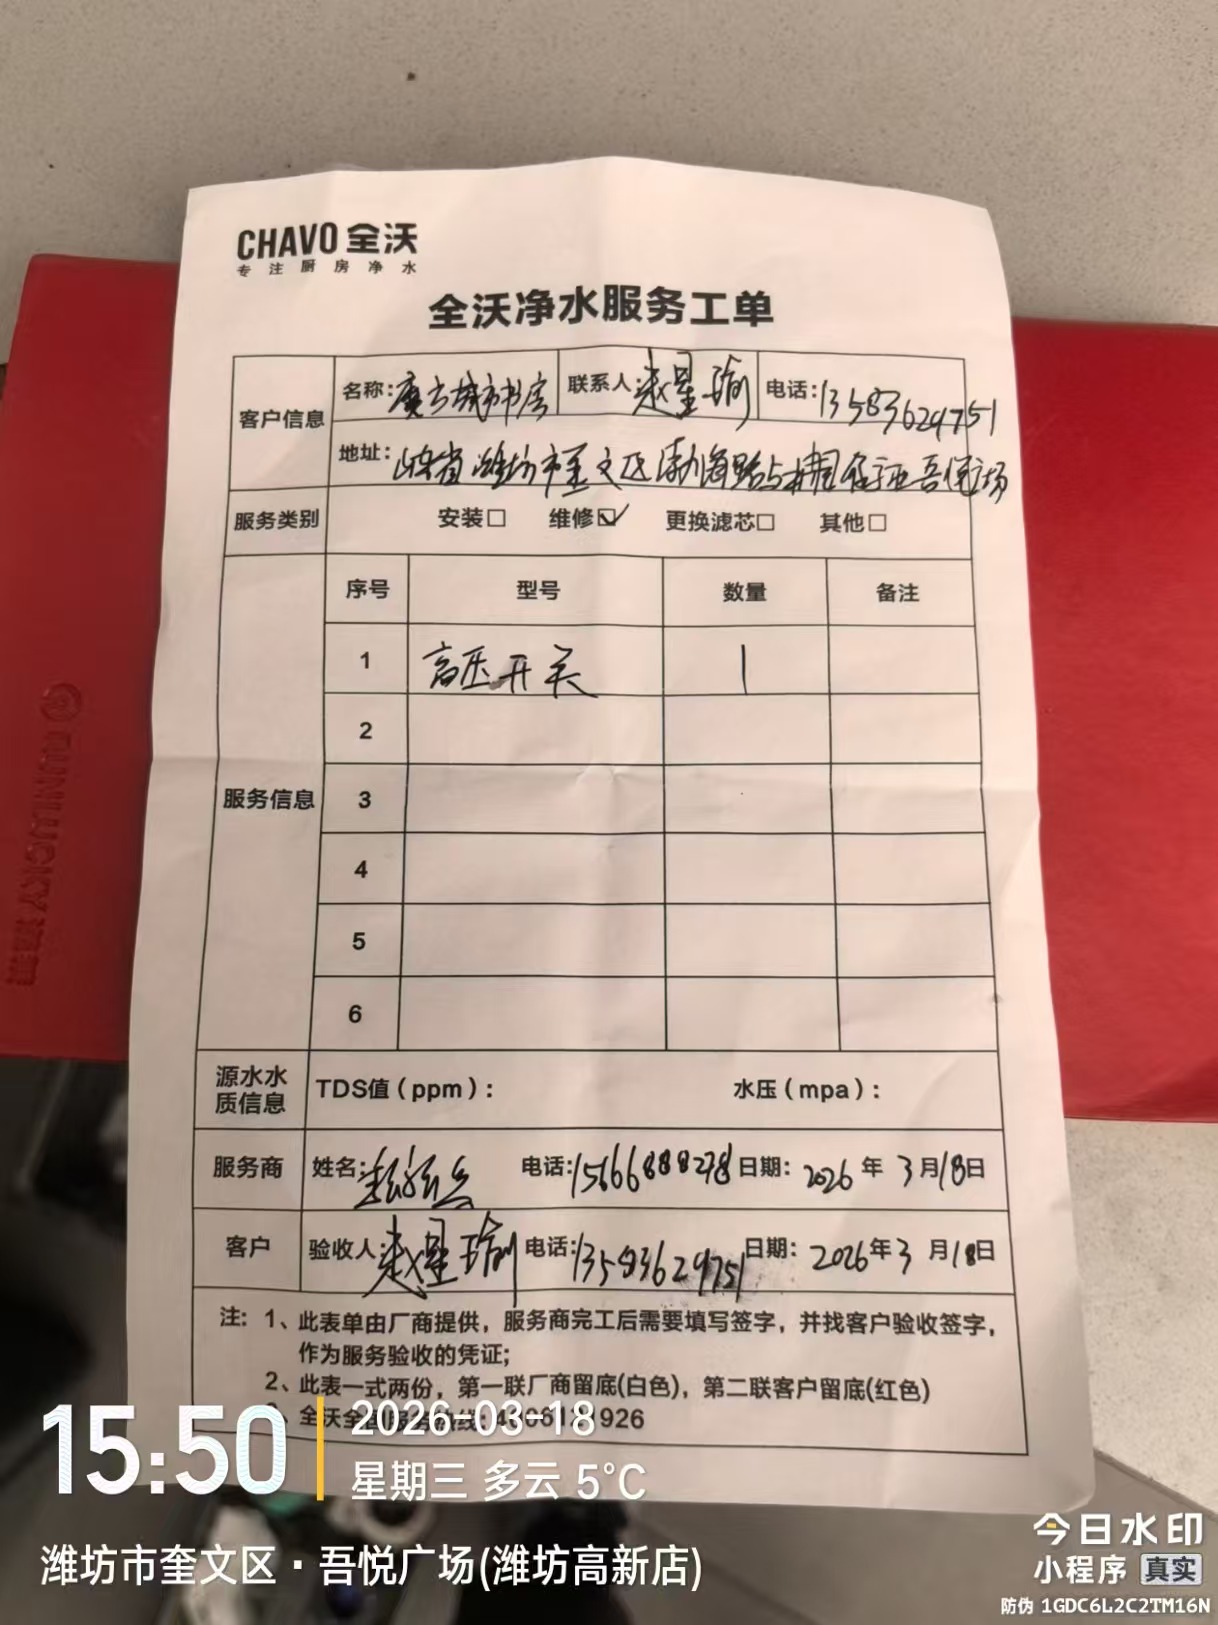 CHAVO 全沃
专注厨房净水
全沃净水服务工单
客户信息 名称: 城市书房 联系人: 赵星瑜 电话: 13583629751
地址: 山东省潍坊市奎文区渤海路与 吾悦广场
服务类别 安装□ 维修☑ 更换滤芯□ 其他□
服务信息 序号 型号 数量 备注
1 高压开关 1
2
3
4
5
6
源水水质信息 TDS值(ppm): 水压(mpa):
服务商 姓名: 电话: 15666888278 日期: 2026年3月18日
客户 验收人: 赵星瑜 电话: 13583629751 日期: 2026年3月18日
注: 1、此表单由厂商提供，服务商完工后需要填写签字，并找客户验收签字，
作为服务验收的凭证;
2、此表一式两份，第一联厂商留底(白色)，第二联客户留底(红色)
全沃全国服务热线:
15:50
2026-03-18
星期三 多云 5°C
潍坊市奎文区·吾悦广场(潍坊高新店)
今日水印
小程序 真实
防伪 1GDC6L2C2TM16N